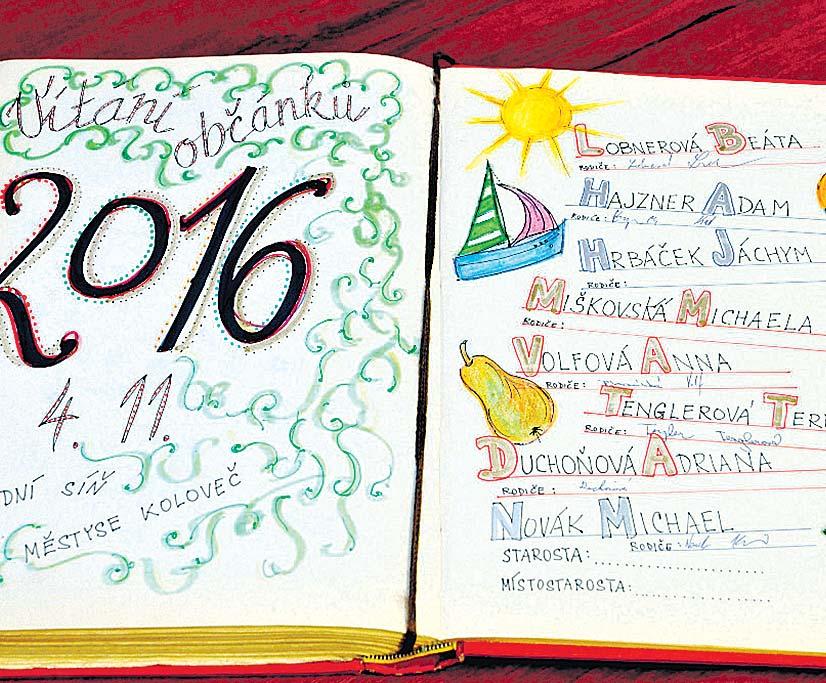 Vítání
občánků
2016
4. 11.
DNÍ SÍŇ
MĚSTYSE KOLOVEČ
LOBNEROVÁ BEÁTA
RODIČE:
HAJZNER ADAM
RODIČE:
HRBÁČEK JÁCHYM
RODIČE:
MIŠKOVSKÁ MICHAELA
RODIČE:
VOLFOVÁ ANNA
RODIČE:
TENGLEROVÁ TER
RODIČE: Tengler Tenglerová
DUCHOŇOVÁ ADRIANA
RODIČE:
NOVÁK MICHAEL
RODIČE:
STAROSTA:
MÍSTOSTAROSTA: